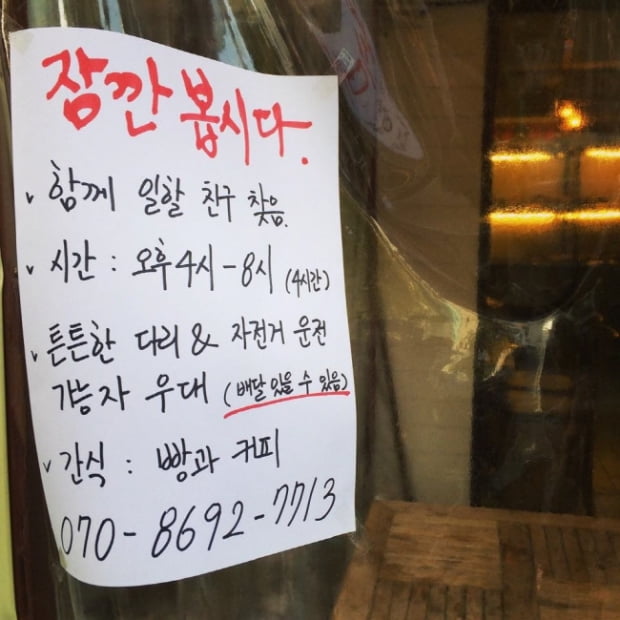 잠깐 봅시다.
v 함께 일할 친구 찾음.
v 시간 : 오후 4시 - 8시 (4시간)
v 튼튼한 다리 & 자전거 운전
가능자 우대 (배달 있을 수 있음)
v 간식 : 빵과 커피
070 - 8692 - 7713